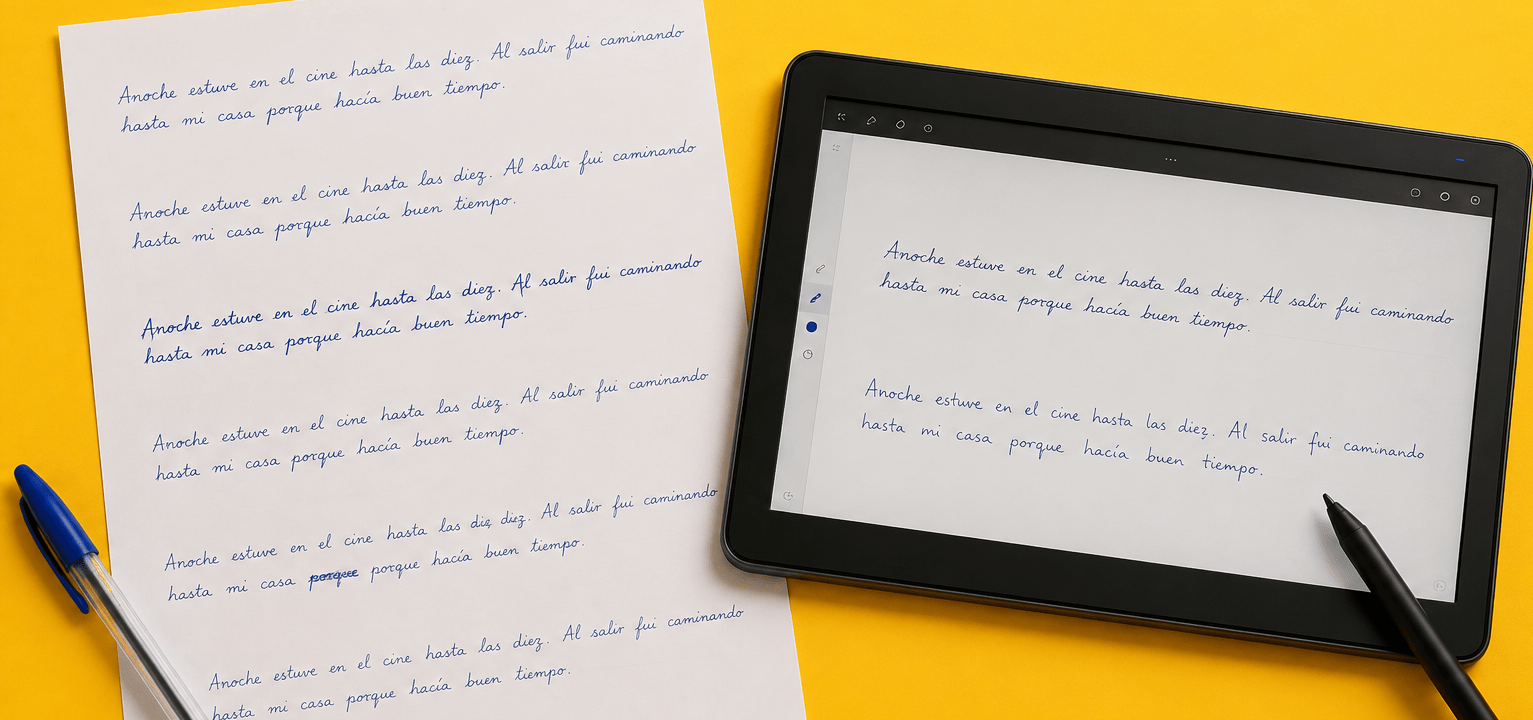 Anoche estuve en el cine hasta las diez. Al salir fui caminando
hasta mi casa porque hacía buen tiempo.
Anoche estuve en el cine hasta las diez. Al salir fui caminando
hasta mi casa porque hacía buen tiempo.
Anoche estuve en el cine hasta las diez. Al salir fui caminando
hasta mi casa porque hacía buen tiempo.
Anoche estuve en el cine hasta las diez. Al salir fui caminando
hasta mi casa porque hacía buen tiempo.
Anoche estuve en el cine hasta las diz diez. Al salir fui caminando
hasta mi casa porque porque hacía buen tiempo.
Anoche estuve en el cine hasta las diez. Al salir fui caminando
hasta mi casa porque hacía buen tiempo.
Anoche estuve en el cine hasta las diez. Al salir fui caminando
hasta mi casa porque hacía buen tiempo.
Anoche estuve en el cine hasta las diez. Al salir fui caminando
hasta mi casa porque hacía buen tiempo.